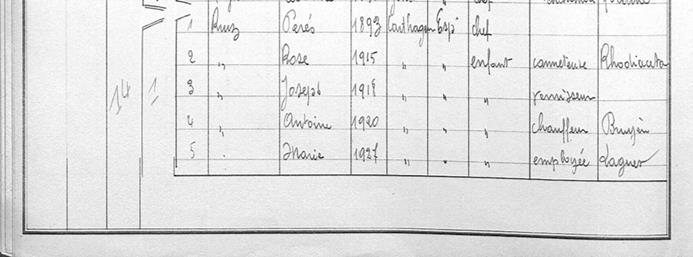 1 Ruiz Perés 1893 Carthagen Esp chef
2 " Rose 1915 " " enfant canneteuse Rhodiaceta
3 " Joseph 1918 " " " vernisseur
4 " Antoine 1920 " " " chauffeur
5 . Marie 1927 " " " employée
14 1